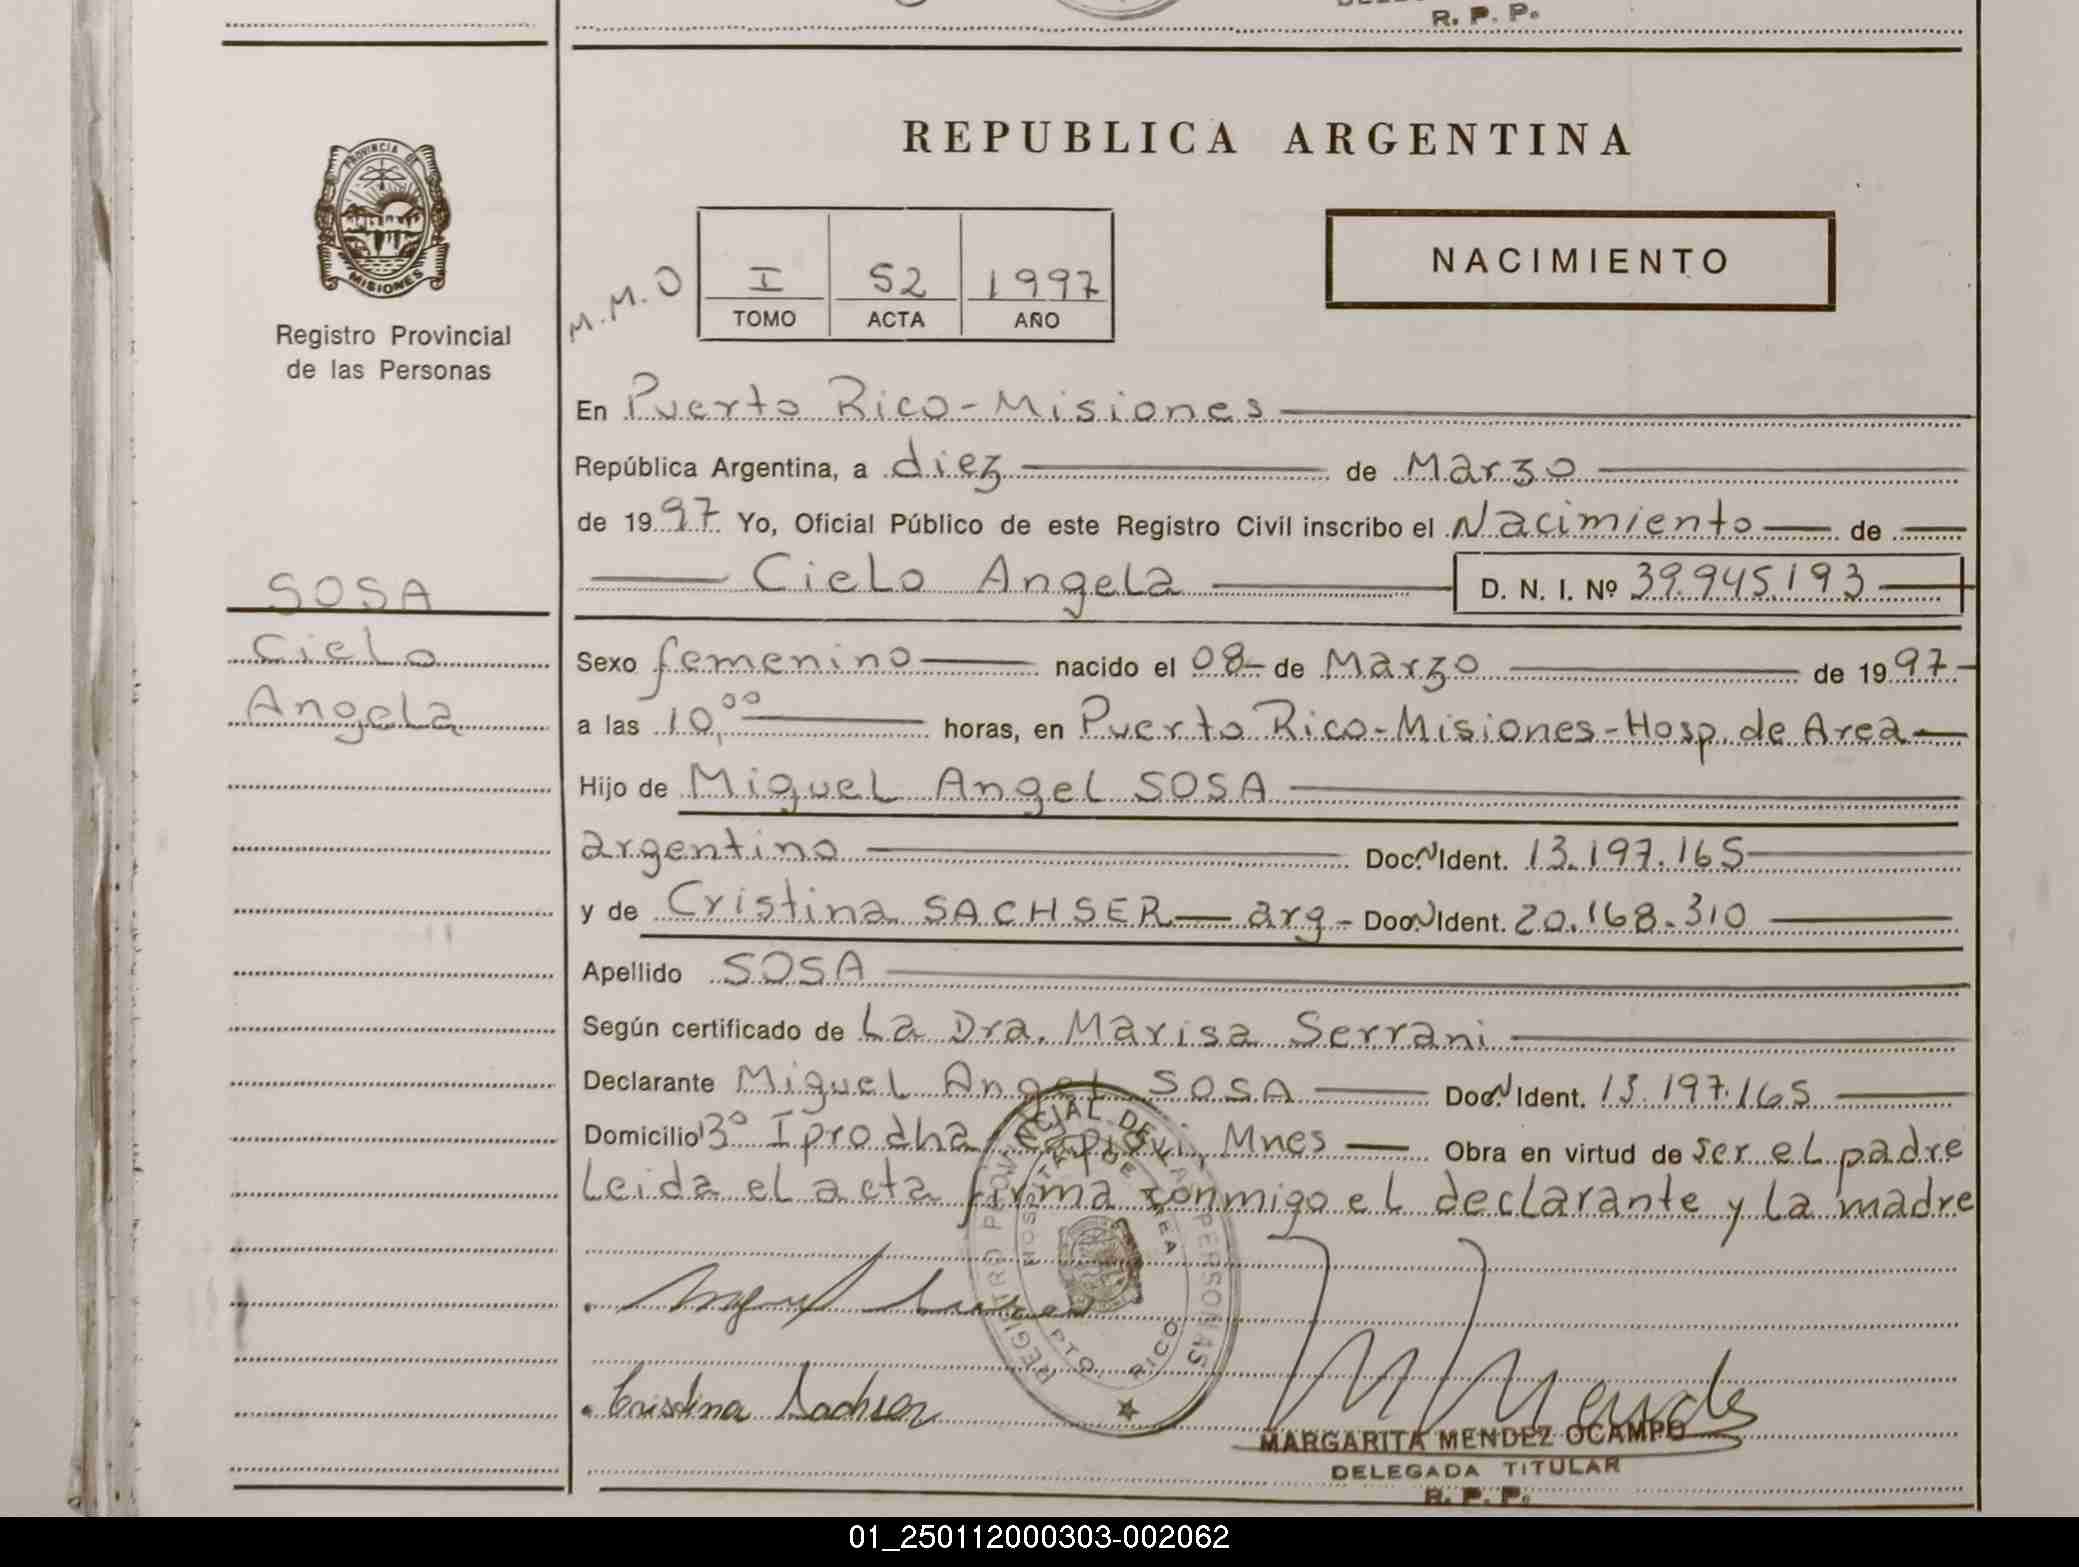 R. P. P.
REPUBLICA ARGENTINA
PROVINCIA DE
MISIONES
Registro Provincial
de las Personas
M.M.O
I 52 1997
TOMO ACTA AÑO
NACIMIENTO
En Puerto Rico - Misiones
República Argentina, a diez de Marzo
de 1997 Yo, Oficial Público de este Registro Civil inscribo el Nacimiento de
Cielo Angela D. N. I. Nº 39.945.193
SOSA
Cielo
Angela
Sexo femenino nacido el 08 de Marzo de 1997
a las 10,00 horas, en Puerto Rico-Misiones-Hosp. de Area
Hijo de Miguel Angel SOSA
argentino Doc. N Ident. 13.197.165
y de Cristina SACHSER arg- Doc. N Ident. 20.168.310
Apellido SOSA
Según certificado de La Dra. Marisa Serrani
Declarante Miguel Angel SOSA Doc. N Ident. 13.197.165
Domicilio Bº Iprodha, Capioví, Mnes Obra en virtud de ser el padre
Leida el acta firma conmigo el declarante y la madre
REGISTRO PROVINCIAL DE LAS PERSONAS
HOSPITAL DE AREA
PTO. RICO
Cristina Sachser
MARGARITA MENDEZ OCAMPO
DELEGADA TITULAR
R. P. P.
01_250112000303-002062